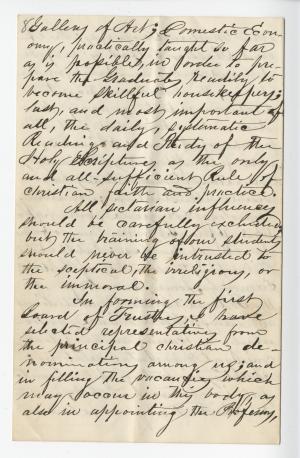 8 Gallery of Art; Domestic Econ-
omy, practically taught so far
as is possible, in order to pre-
pare the Graduates readily to
become skillful housekeepers;
last, and most important of
all, the daily, systematic
Reading and Study of the
Holy Scriptures, as the only
and all-sufficient Rule of
christian faith and practice.
All sectarian influences
should be carefully excluded;
but the training of our students
should never be intrusted to
the sceptical, the irreligious, or
the immoral.
In forming the first
Board of Trustees, I have
selected representatives from
the principal christian de-
nominations among us; and
in filling the vacancies, which
may occur in this body, as
also in appointing the Professors,